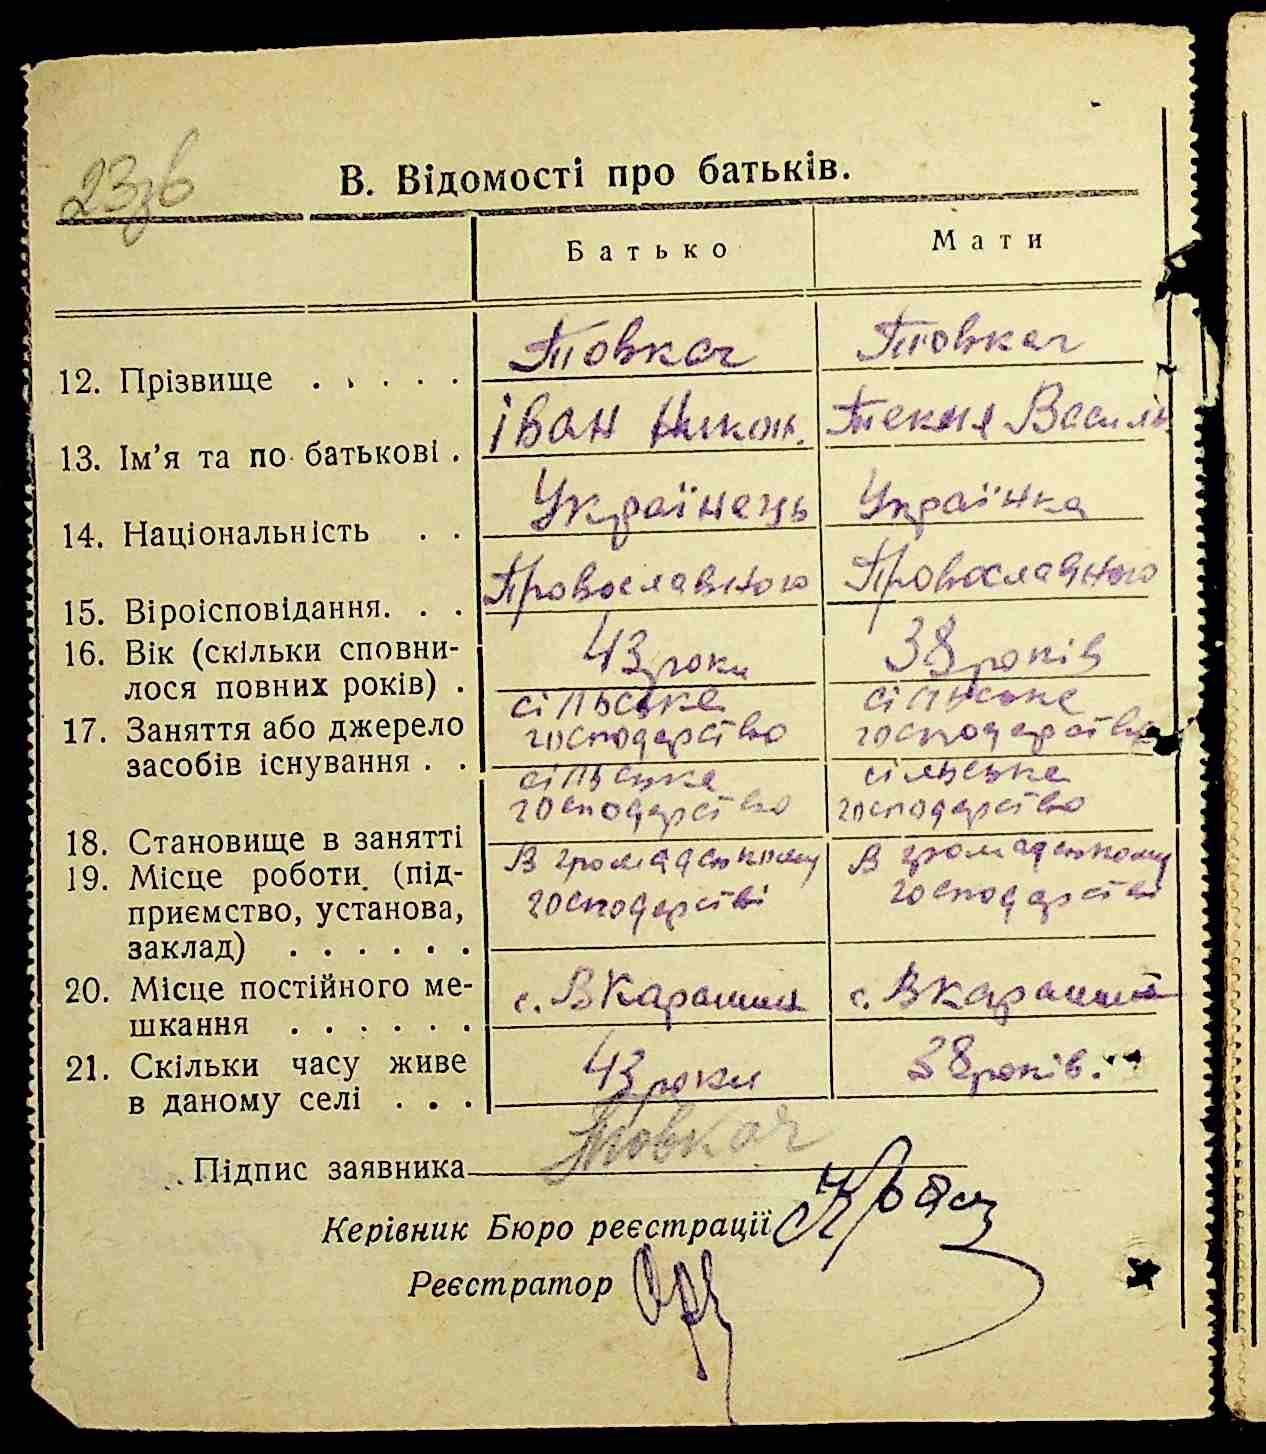 23зв
В. Відомості про батьків.
Батько Мати
12. Прізвище . . . . . Товкач Товкач
13. Ім’я та по батькові . Іван Никон. Текля Василь
14. Національність . . Українець Українка
15. Віроісповідання. . . Провославного Провославного
16. Вік (скільки сповни- 43 роки 38 років
лося повних років) .
17. Заняття або джерело сільське сільське
засобів існування . . господарство господарство
18. Становище в занятті сільське сільське
господарство господарство
19. Місце роботи (під- В громаденкому В громаденкому
приємство, установа, господарстві господарстві
заклад) . . . . . .
20. Місце постійного ме- с. ВКарашин с. ВКарашин
шкання . . . . . .
21. Скільки часу живе 43 роки 38 років.
в даному селі . . .
Підпис заявника Товкач
Керівник Бюро реєстрації
Реєстратор